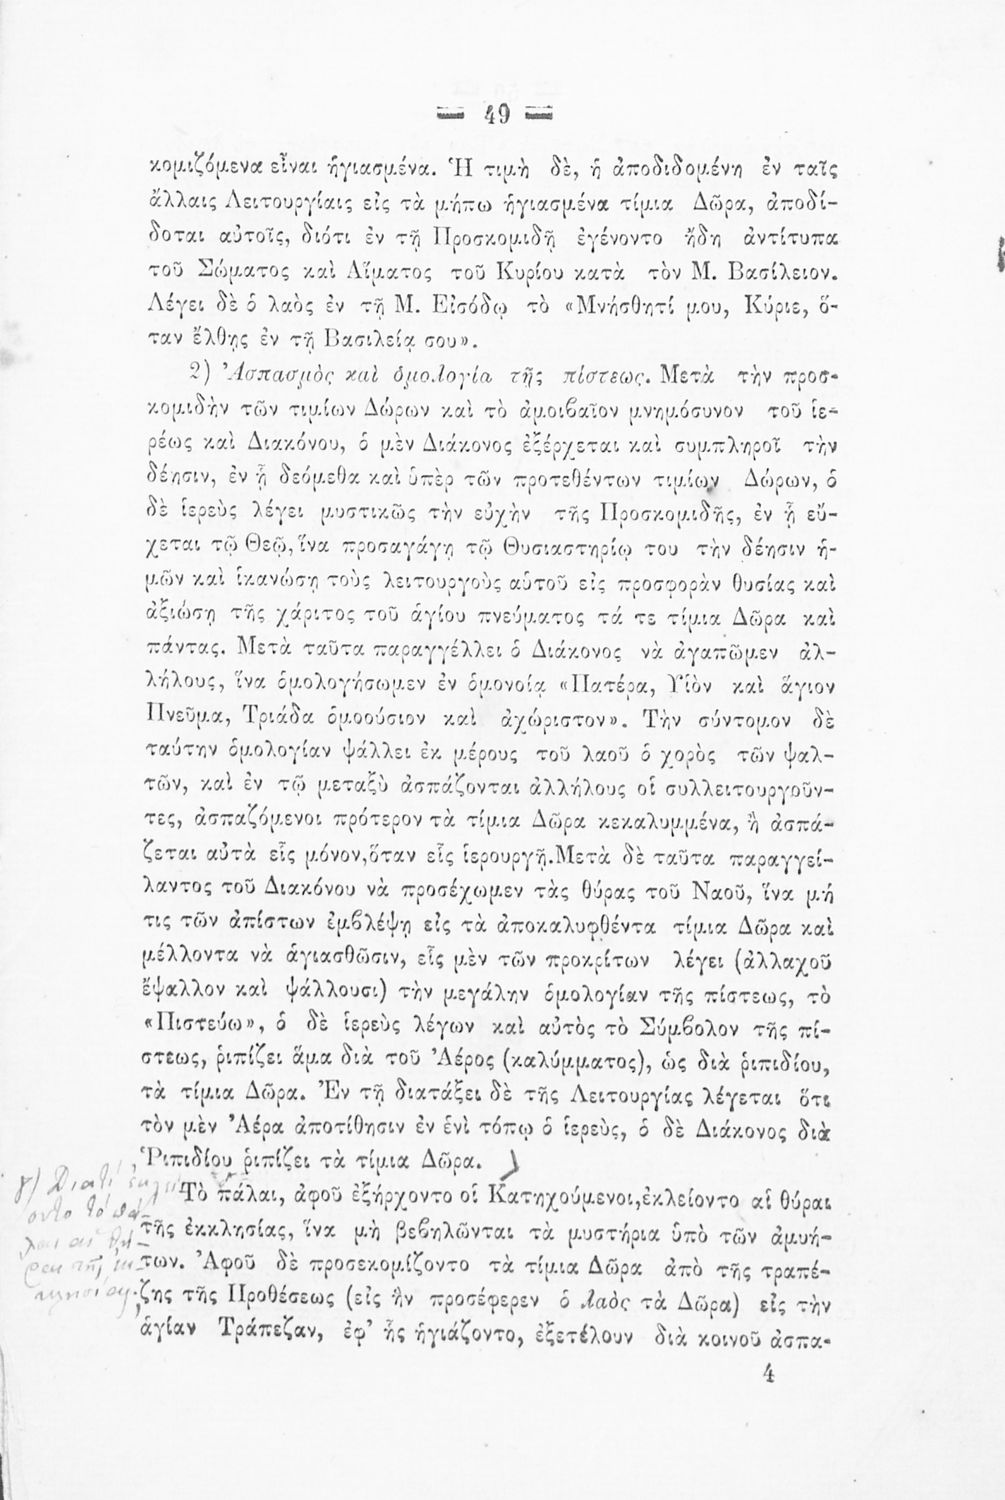 = 49 =
κομιζόμενα εἶναι ἡγιασμένα. Ἡ τιμὴ δὲ, ἡ ἀποδιδομένη ἐν ταῖς
ἄλλαις Λειτουργίαις εἰς τὰ μήπω ἡγιασμένα τίμια Δῶρα, ἀποδί-
δοται αὐτοῖς, διότι ἐν τῇ Προσκομιδῇ ἐγένοντο ἤδη ἀντίτυπα
τοῦ Σώματος καὶ Αἵματος τοῦ Κυρίου κατὰ τὸν Μ. Βασίλειον.
Λέγει δὲ ὁ λαὸς ἐν τῇ Μ. Εἰσόδῳ τὸ «Μνήσθητί μου, Κύριε, ὅ-
ταν ἔλθῃς ἐν τῇ Βασιλείᾳ σου».
2) Ἀσπασμὸς καὶ ὁμολογία τῆς πίστεως. Μετὰ τὴν προσ-
κομιδὴν τῶν τιμίων Δώρων καὶ τὸ ἀμοιβαῖον μνημόσυνον τοῦ ἱε-
ρέως καὶ Διακόνου, ὁ μὲν Διάκονος ἐξέρχεται καὶ συμπληροῖ τὴν
δέησιν, ἐν ᾗ δεόμεθα καὶ ὑπὲρ τῶν προτεθέντων τιμίων Δώρων, ὁ
δὲ ἱερεὺς λέγει μυστικῶς τὴν εὐχὴν τῆς Προσκομιδῆς, ἐν ᾗ εὔ-
χεται τῷ Θεῷ, ἵνα προσαγάγῃ τῷ Θυσιαστηρίῳ του τὴν δέησιν ἡ-
μῶν καὶ ἱκανώσῃ τοὺς λειτουργοὺς αὑτοῦ εἰς προσφορὰν θυσίας καὶ
ἀξιώσῃ τῆς χάριτος τοῦ ἁγίου πνεύματος τά τε τίμια Δῶρα καὶ
πάντας. Μετὰ ταῦτα παραγγέλλει ὁ Διάκονος νὰ ἀγαπῶμεν ἀλ-
λήλους, ἵνα ὁμολογήσωμεν ἐν ὁμονοίᾳ «Πατέρα, Υἱὸν καὶ ἅγιον
Πνεῦμα, Τριάδα ὁμοούσιον καὶ ἀχώριστον». Τὴν σύντομον δὲ
ταύτην ὁμολογίαν ψάλλει ἐκ μέρους τοῦ λαοῦ ὁ χορὸς τῶν ψαλ-
τῶν, καὶ ἐν τῷ μεταξὺ ἀσπάζονται ἀλλήλους οἱ συλλειτουργοῦν-
τες, ἀσπαζόμενοι πρότερον τὰ τίμια Δῶρα κεκαλυμμένα, ἢ ἀσπά-
ζεται αὐτὰ εἷς μόνον, ὅταν εἷς ἱερουργῇ. Μετὰ δὲ ταῦτα παραγγεί-
λαντος τοῦ Διακόνου νὰ προσέχωμεν τὰς θύρας τοῦ Ναοῦ, ἵνα μή
τις τῶν ἀπίστων ἐμβλέψῃ εἰς τὰ ἀποκαλυφθέντα τίμια Δῶρα καὶ
μέλλοντα νὰ ἁγιασθῶσιν, εἷς μὲν τῶν προκρίτων λέγει (ἀλλαχοῦ
ἔψαλλον καὶ ψάλλουσι) τὴν μεγάλην ὁμολογίαν τῆς πίστεως, τὸ
«Πιστεύω», ὁ δὲ ἱερεὺς λέγων καὶ αὐτὸς τὸ Σύμβολον τῆς πί-
στεως, ῥιπίζει ἅμα διὰ τοῦ Ἀέρος (καλύμματος), ὡς διὰ ῥιπιδίου,
τὰ τίμια Δῶρα. Ἐν τῇ διατάξει δὲ τῆς Λειτουργίας λέγεται ὅτι
τὸν μὲν Ἀέρα ἀποτίθησιν ἐν ἑνὶ τόπῳ ὁ ἱερεὺς, ὁ δὲ Διάκονος διὰ
Ῥιπιδίου ῥιπίζει τὰ τίμια Δῶρα.
γ) Διατί ἐκλεί-
οντο τὸ πά-
λαι αἱ θύ-
ραι τῆς ἐκ-
κλησίας
Τὸ πάλαι, ἀφοῦ ἐξήρχοντο οἱ Κατηχούμενοι, ἐκλείοντο αἱ θύραι
τῆς ἐκκλησίας, ἵνα μὴ βεβηλῶνται τὰ μυστήρια ὑπὸ τῶν ἀμυή-
των. Ἀφοῦ δὲ προσεκομίζοντο τὰ τίμια Δῶρα ἀπὸ τῆς τραπέ-
ζης τῆς Προθέσεως (εἰς ἣν προσέφερεν ὁ λαὸς τὰ Δῶρα) εἰς τὴν
ἁγίαν Τράπεζαν, ἐφ' ἧς ἡγιάζοντο, ἐξετέλουν διὰ κοινοῦ ἀσπα-
4